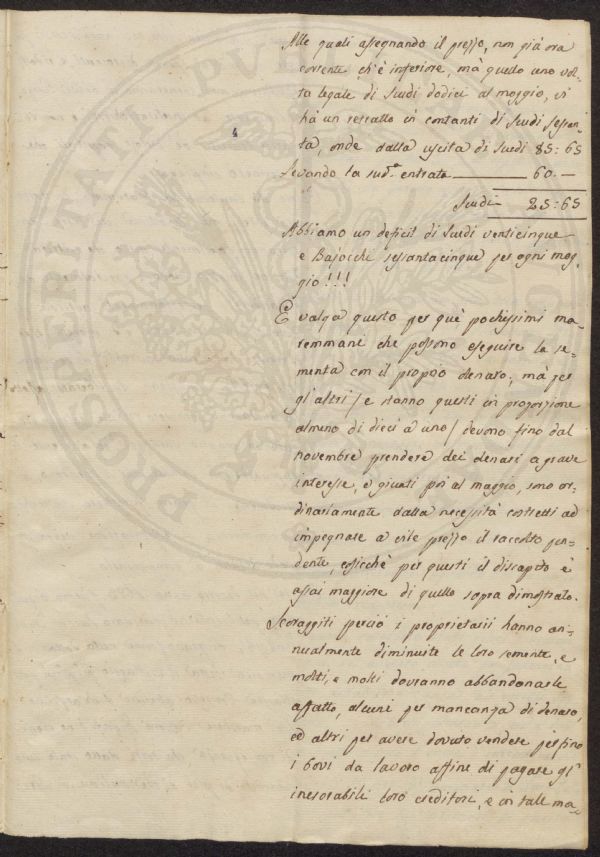 Alle quali assegnando il prezzo, non già ora
corrente ch'è inferiore, mà quello uno vol-
ta legale di Scudi dodici al moggio, si
hà un retratto in contanti di Scudi sessan-
ta, onde dalla uscita di Scudi 85:65
levando la sudª entrata ——— 60.—
Scudi — 25:65
Abbiamo un deficit di Scudi venticinque
e Bajocchi sessantacinque per ogni mog-
gio!!!
E valga questo per què pochissimi ma-
remmani che possono eseguire la se-
menta con il proprio denaro; mà per
gl'altri / e stanno questi in proporzione
almeno di dieci à uno / devono fino dal
novembre prendere dei denari a grave
interesse, e giunti poi al maggio, sono or-
dinariamente dalla necessità costretti ad
impegnare a vile prezzo il raccolto pen-
dente, cosicchè per questi il discapito è
assai maggiore di quello sopra dimostrato.
Scoraggiti perciò i proprietarii hanno an-
nualmente diminuite le loro semente, e
molti, e molti dovranno abbandonarle
affatto, alcuni per mancanza di denaro,
ed altri per avere dovuto vendere persino
i bovi da lavoro affine di pagare gl'
inesorabili loro creditori, e in tale ma-
PROSPERITATI PVBLICAE